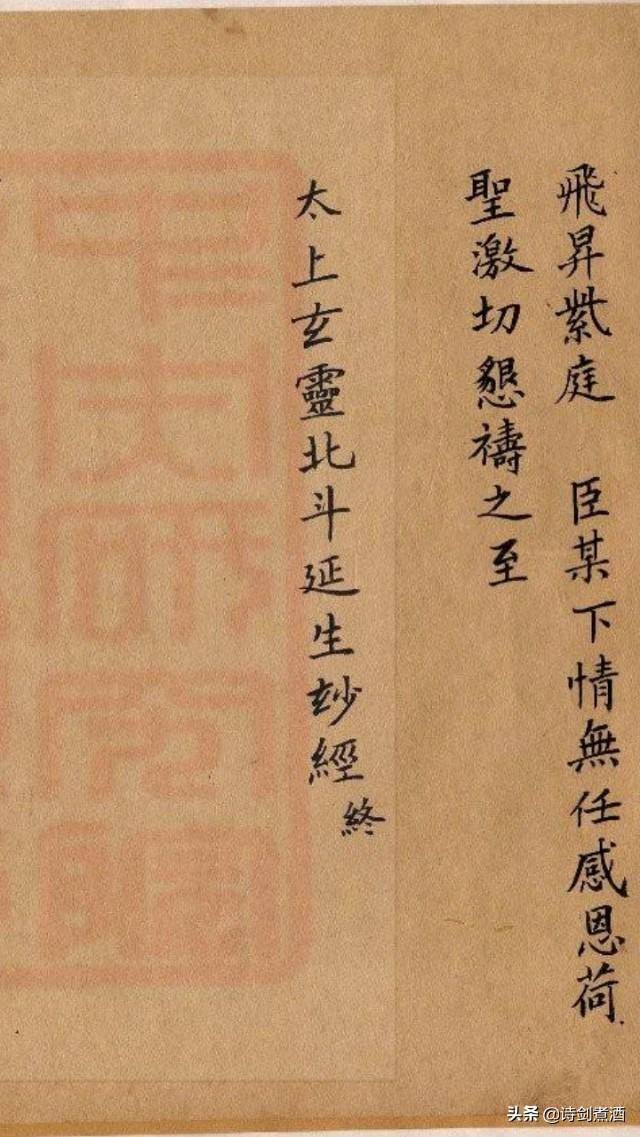 飛昇紫庭　臣某下情無任感恩荷
聖激切懇禱之至
太上玄靈北斗延生玅經終
头条 @诗剑煮酒